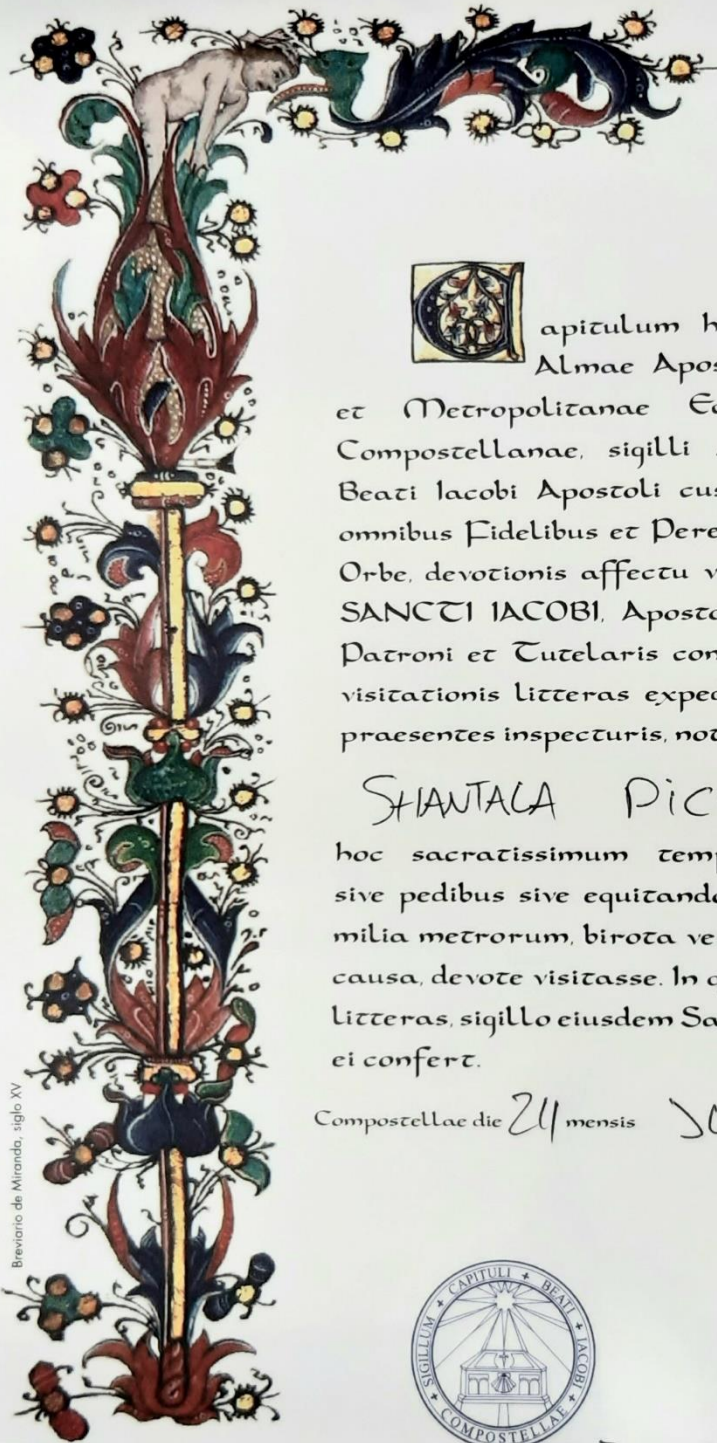 Capitulum h
Almae Apos
et Metropolitanae Ec
Compostellanae, sigilli
Beati Iacobi Apostoli cus
omnibus Fidelibus et Pere
Orbe, devotionis affectu v
SANCTI IACOBI, Aposto
Patroni et Tutelaris con
visitationis litteras exped
praesentes inspecturis, not
SHANTALA PIC
hoc sacratissimum temp
sive pedibus sive equitando
milia metrorum, birota ve
causa, devote visitasse. In q
litteras, sigillo eiusdem Sa
ei confert.
Compostellae die 24 mensis
Breviario de Miranda, siglo XV
SIGILLUM + CAPITULI + BEATI + IACOBI + COMPOSTELLAE +